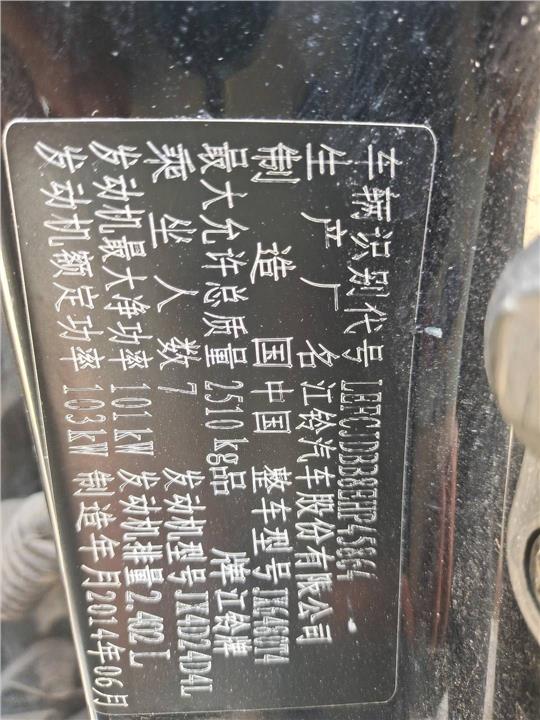 车辆识别代号 LEFCJDBB8EHP45864
生产厂名 江铃汽车股份有限公司
制造国 中国 整车型号 JX6485T4
最大允许总质量 2510kg 品牌 江铃牌
乘坐人数 7 发动机型号 JX4D24D4L
发动机最大净功率 101kW 发动机排量 2.402L
发动机额定功率 103kW 制造年月 2014年06月